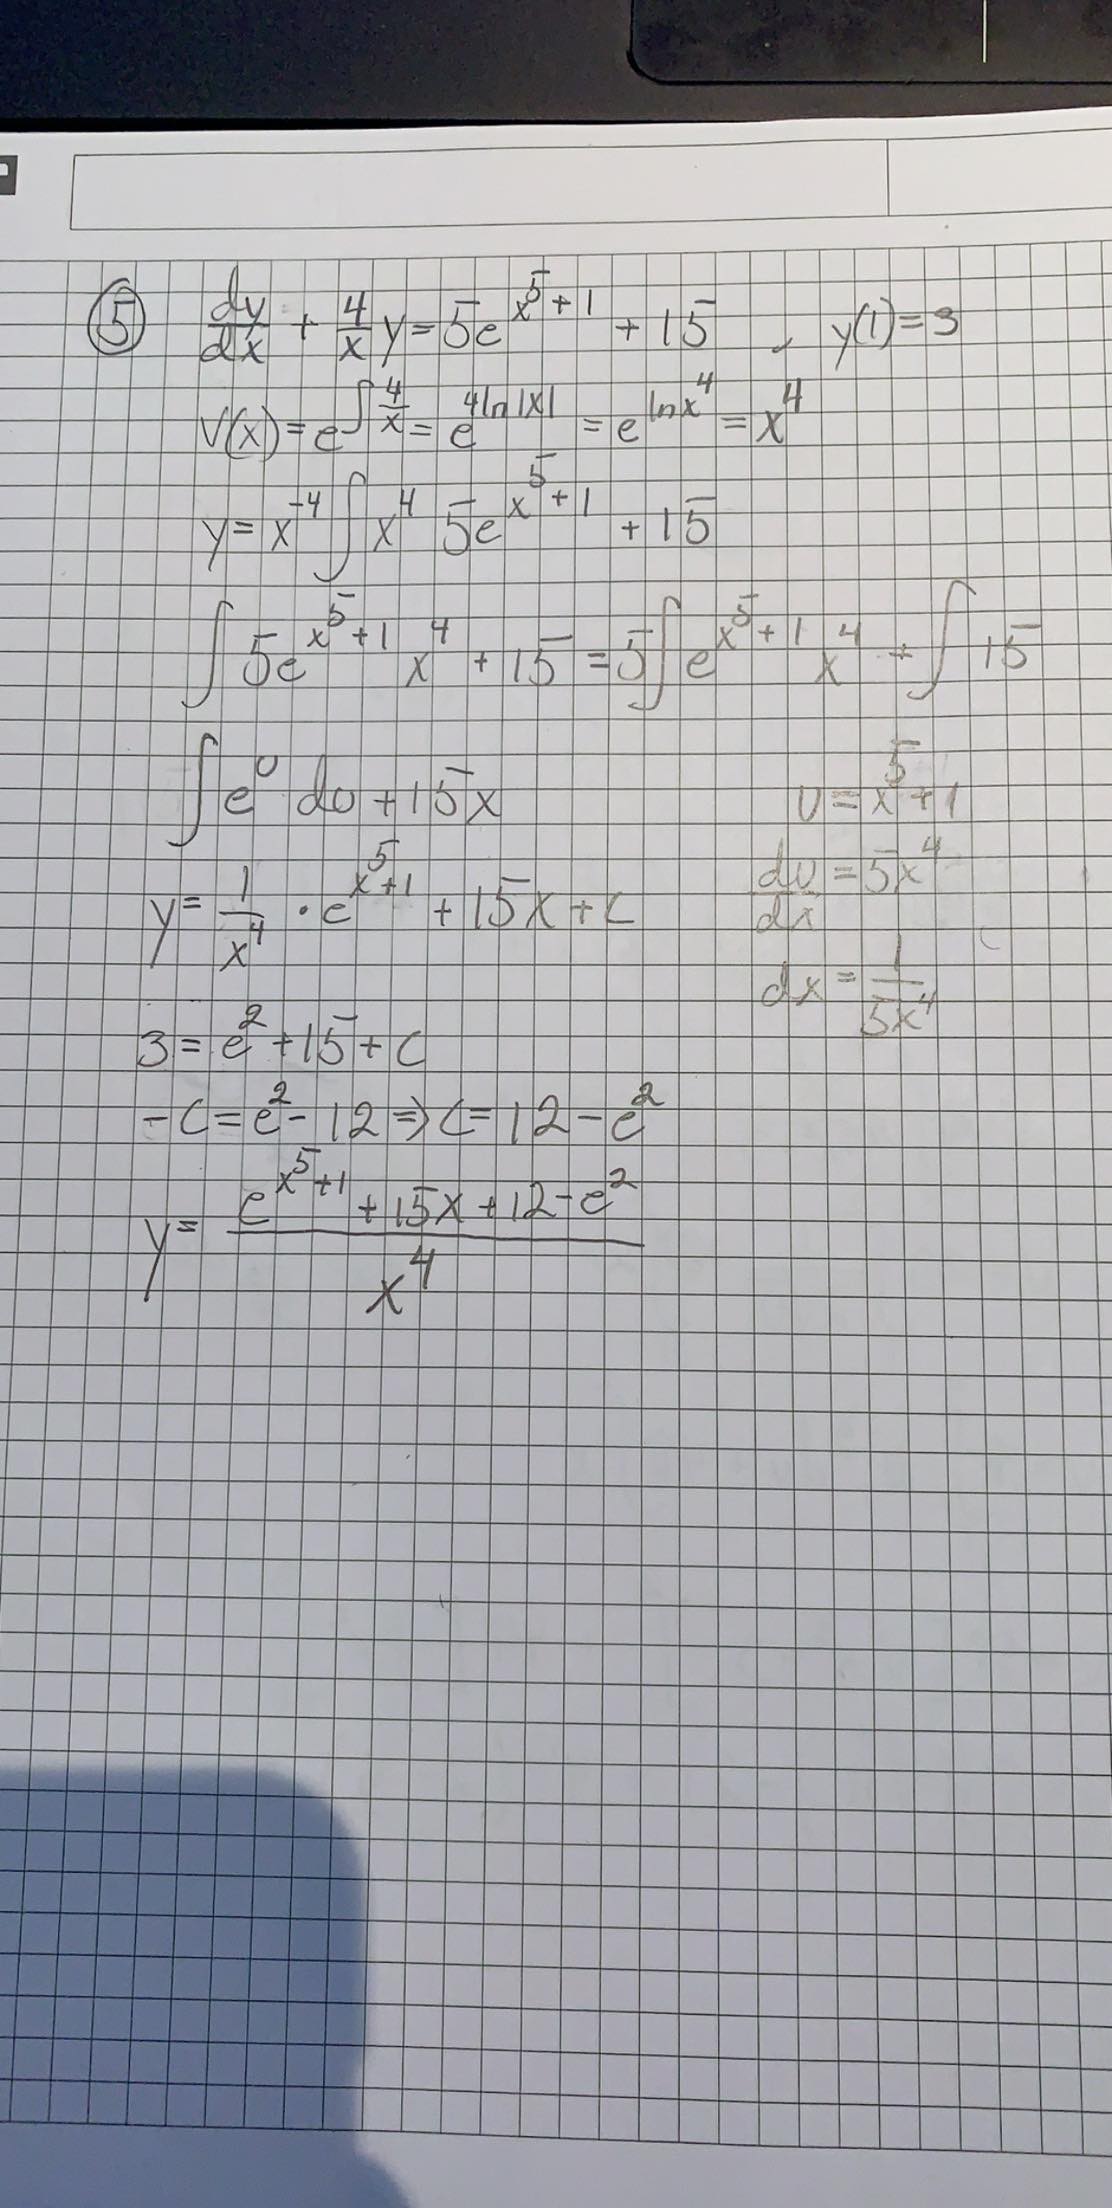 ⑤ dy/dx + 4/x y = 5e^(x^5+1) + 15 , y(1) = 3
V(x) = e^(∫4/x) = e^(4ln|x|) = e^(ln x^4) = x^4
y = x^-4 ∫ x^4 5e^(x^5+1) + 15
∫ 5e^(x^5+1) x^4 + 15 = 5∫ e^(x^5+1) x^4 + ∫ 15
∫ e^u du + 15x
u = x^5 + 1
du/dx = 5x^4
dx = 1/(5x^4)
y = 1/x^4 · e^(x^5+1) + 15x + c
3 = e^2 + 15 + c
-c = e^2 - 12 ⇒ c = 12 - e^2
y = (e^(x^5+1) + 15x + 12 - e^2)/x^4